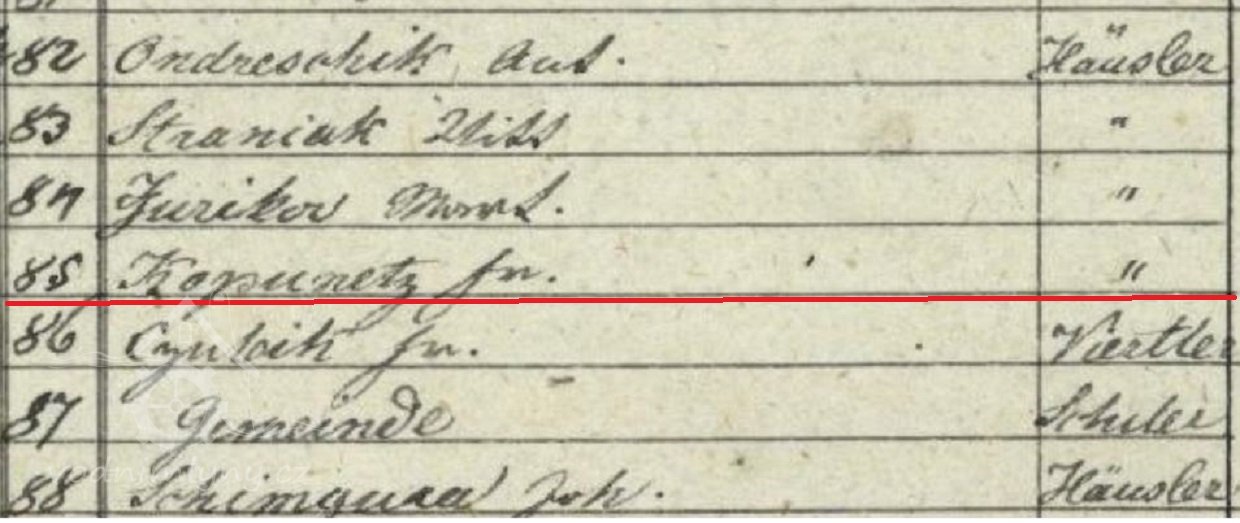 82 Ondreschik Ant. Häusler
83 Straniak "
84 Jurikov "
85 Kopunetz fr. "
86 fr. Viertler
87 Gemeinde Schule
88 Joh. Häusler